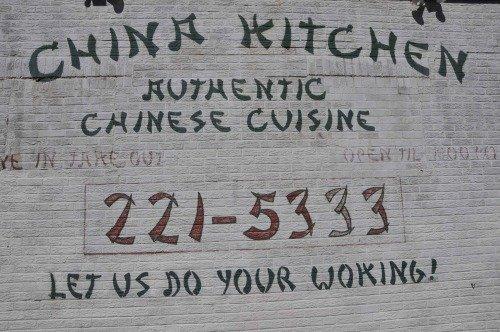 CHINA KITCHEN
AUTHENTIC
CHINESE CUISINE
IN TAKE OUT OPEN TIL
221-5333
LET US DO YOUR WOKING!